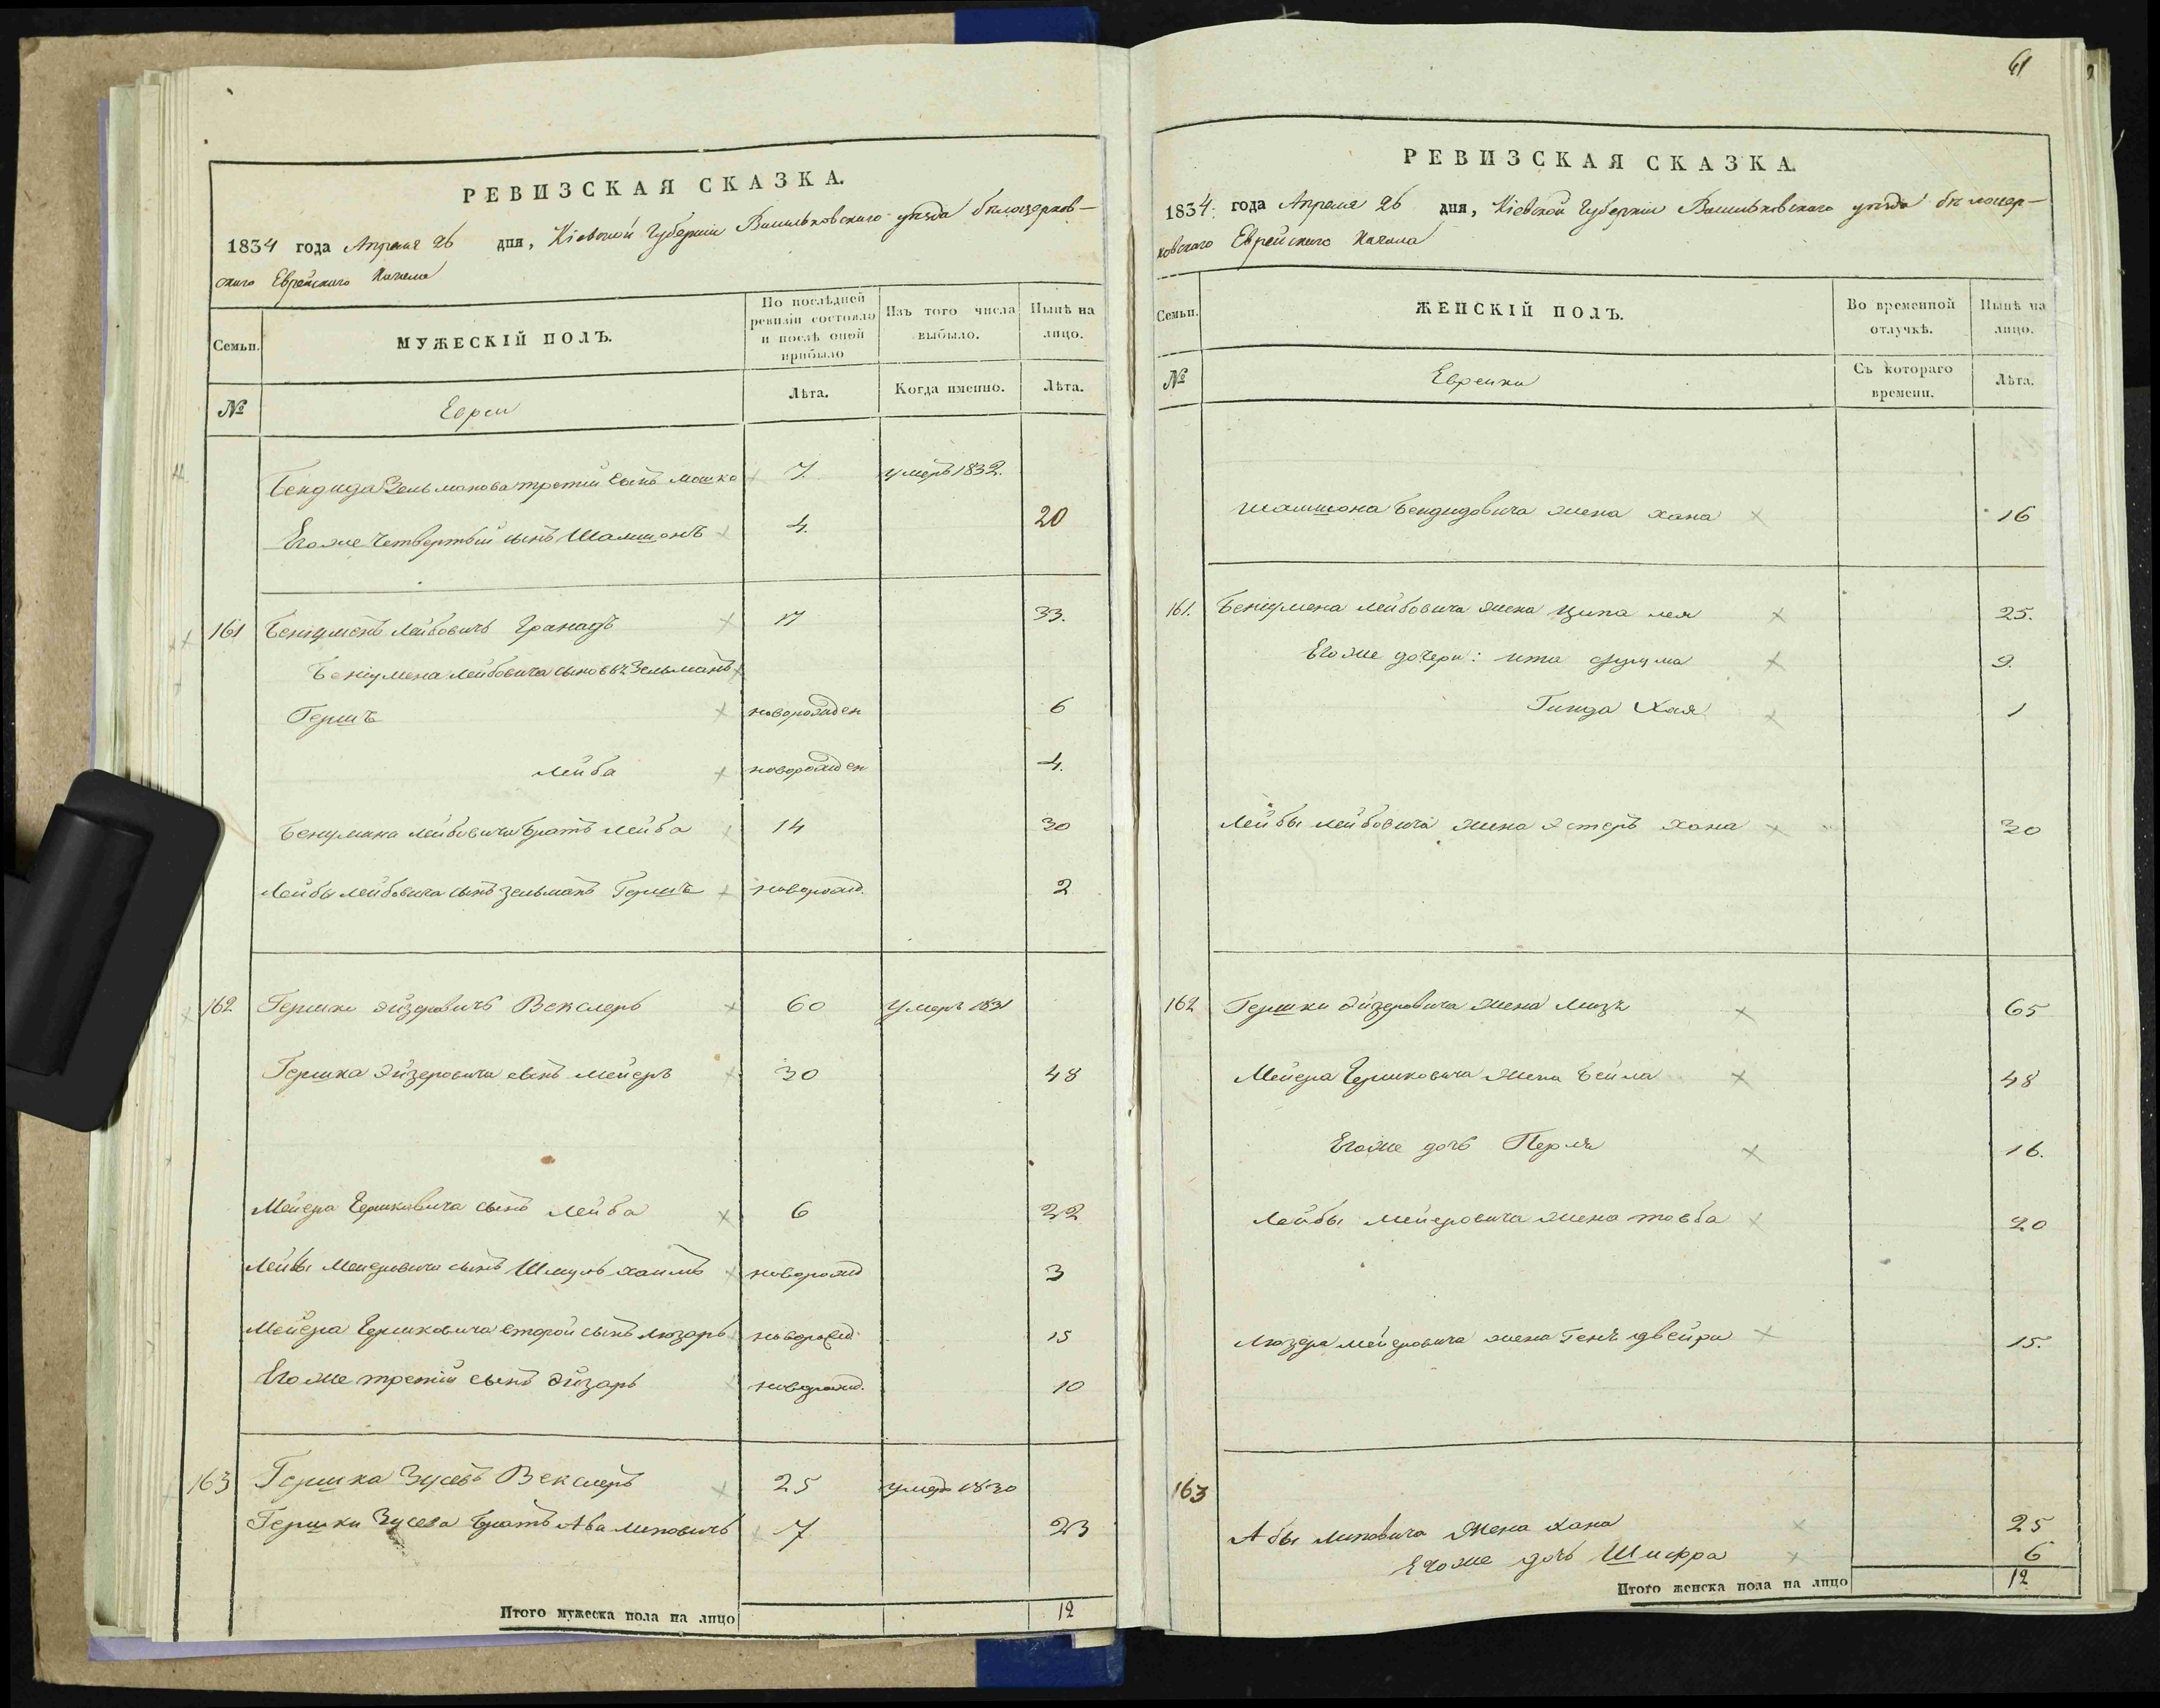 РЕВИЗСКАЯ СКАЗКА.
1834 года Апреля 26 дня, Кіевской Губерніи Васильковскаго уезда белоцерков-
скаго Еврейскаго Кагала
Семьи. МУЖЕСКІЙ ПОЛЪ. По послѣдней ревизіи состояло и послѣ оной прибыло Изъ того числа выбыло. Нынѣ на лицо.
№ Евреи Лѣта. Когда именно. Лѣта.
Бендида Зельманова третій сынъ Мошко 7. умеръ 1832.
Его же четвертый сынъ Шамшонъ 4. 20
161 Беніуменъ Лейбовичъ Гранадъ 17 33.
Беніумена Лейбовича сыновья Зельманъ
Гершъ новорожден 6
Лейба новорожден 4.
Бениумина Лейбовича братъ Лейба 14 30
Лейбы Лейбовича сынъ Зельманъ Гершъ новорожд. 2
162 Гершко Эйзеровичъ Векслеръ 60 умеръ 1831
Гершка Эйзеровича сынъ Мейеръ 30 48
Мейера Гершковича сынъ Лейба 6 22
Лейбы Мейеровича сынъ Шмуль Хаимъ новорожд 3
Мейера Гершковича второй сынъ Люзаръ новорожд. 15
Его же третій сынъ Эйзаръ новорожд. 10
163 Гершка Зусевъ Векслеръ 25 умеръ 1830
Гершки Зусева братъ Аба Липовичъ 7 23
Итого мужеска пола на лицо 12
61
РЕВИЗСКАЯ СКАЗКА.
1834 года Апреля 26 дня, Кіевской Губерніи Васильковскаго уезда белоцер-
ковскаго Еврейскаго Кагала
Семьи. ЖЕНСКІЙ ПОЛЪ. Во временной отлучкѣ. Нынѣ на лицо.
№ Еврейки Съ котораго времени. Лѣта.
Шамшона Бендидовича жена Хана 16
161. Беніумена Лейбовича жена Ципа Лея 25.
Его же дочери: Ита Фрума 9.
Гинда Хая 1
Лейбы Лейбовича жена Эстеръ Хана 30
162 Гершки Эйзеровича жена 65
Мейера Гершковича жена Бейла 48
Его же дочь Перля 16.
Лейбы Мейеровича жена Товба 20
Люзера Мейеровича жена Двейра 15.
163
Абы Липовича жена Хана 25
Его же дочь Шифра 6
Итого женска пола на лицо 12